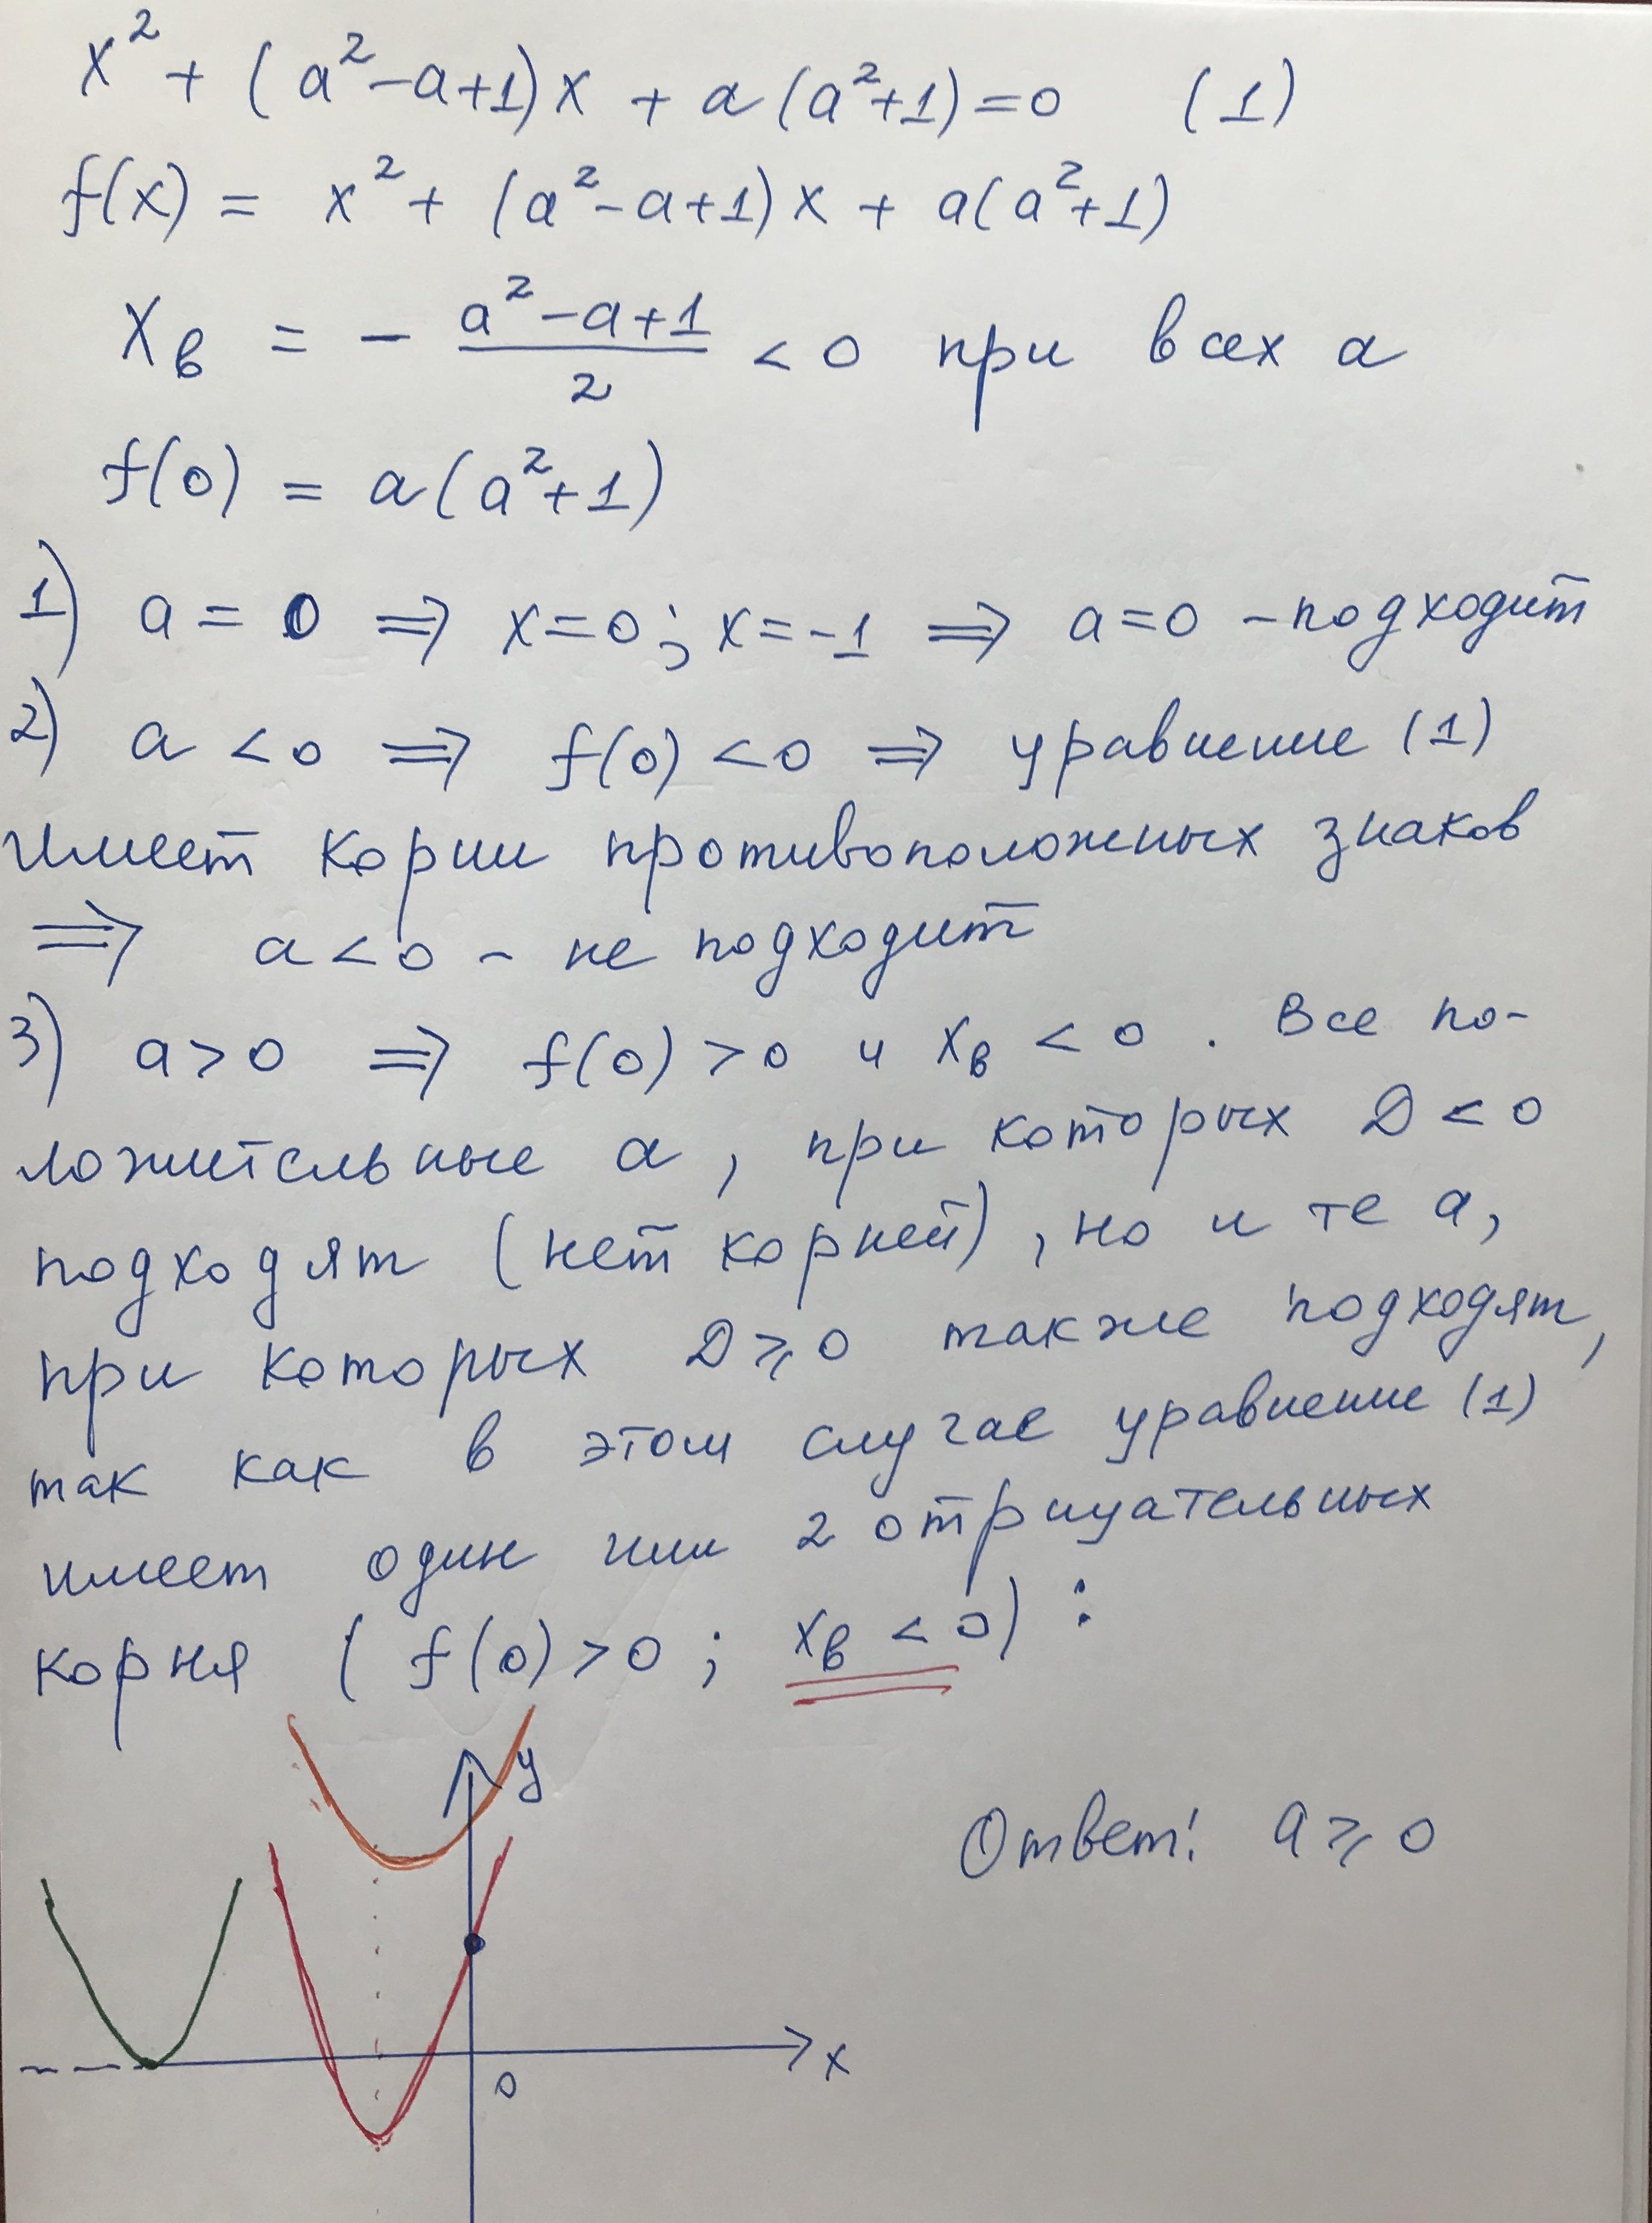 x² + (a²-a+1)x + a(a²+1)=0 (1)
f(x) = x² + (a²-a+1)x + a(a²+1)
xв = - (a²-a+1)/2 < 0 при всех a
f(0) = a(a²+1)
1) a = 0 ⇒ x=0; x=-1 ⇒ a=0 - подходит
2) a < 0 ⇒ f(0) < 0 ⇒ уравнение (1)
имеет корни противоположных знаков
⇒ a < 0 - не подходит
3) a > 0 ⇒ f(0) > 0 и xв < 0. Все по-
ложительные a, при которых D < 0
подходят (нет корней), но и те a,
при которых D ⩾ 0 также подходят,
так как в этом случае уравнение (1)
имеет один или 2 отрицательных
корня (f(0) > 0; xв < 0):
y
Ответ: a ⩾ 0
x
0